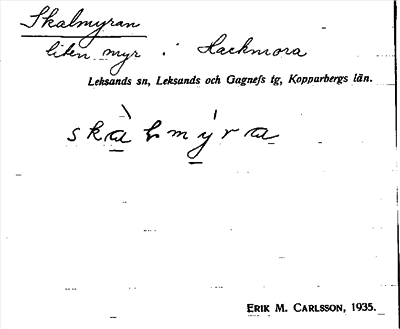 Skalmyran
liten myr i Hackmora
Leksands sn, Leksands och Gagnefs tg, Kopparbergs län.
skàlmýra
ERIK M. CARLSSON, 1935.